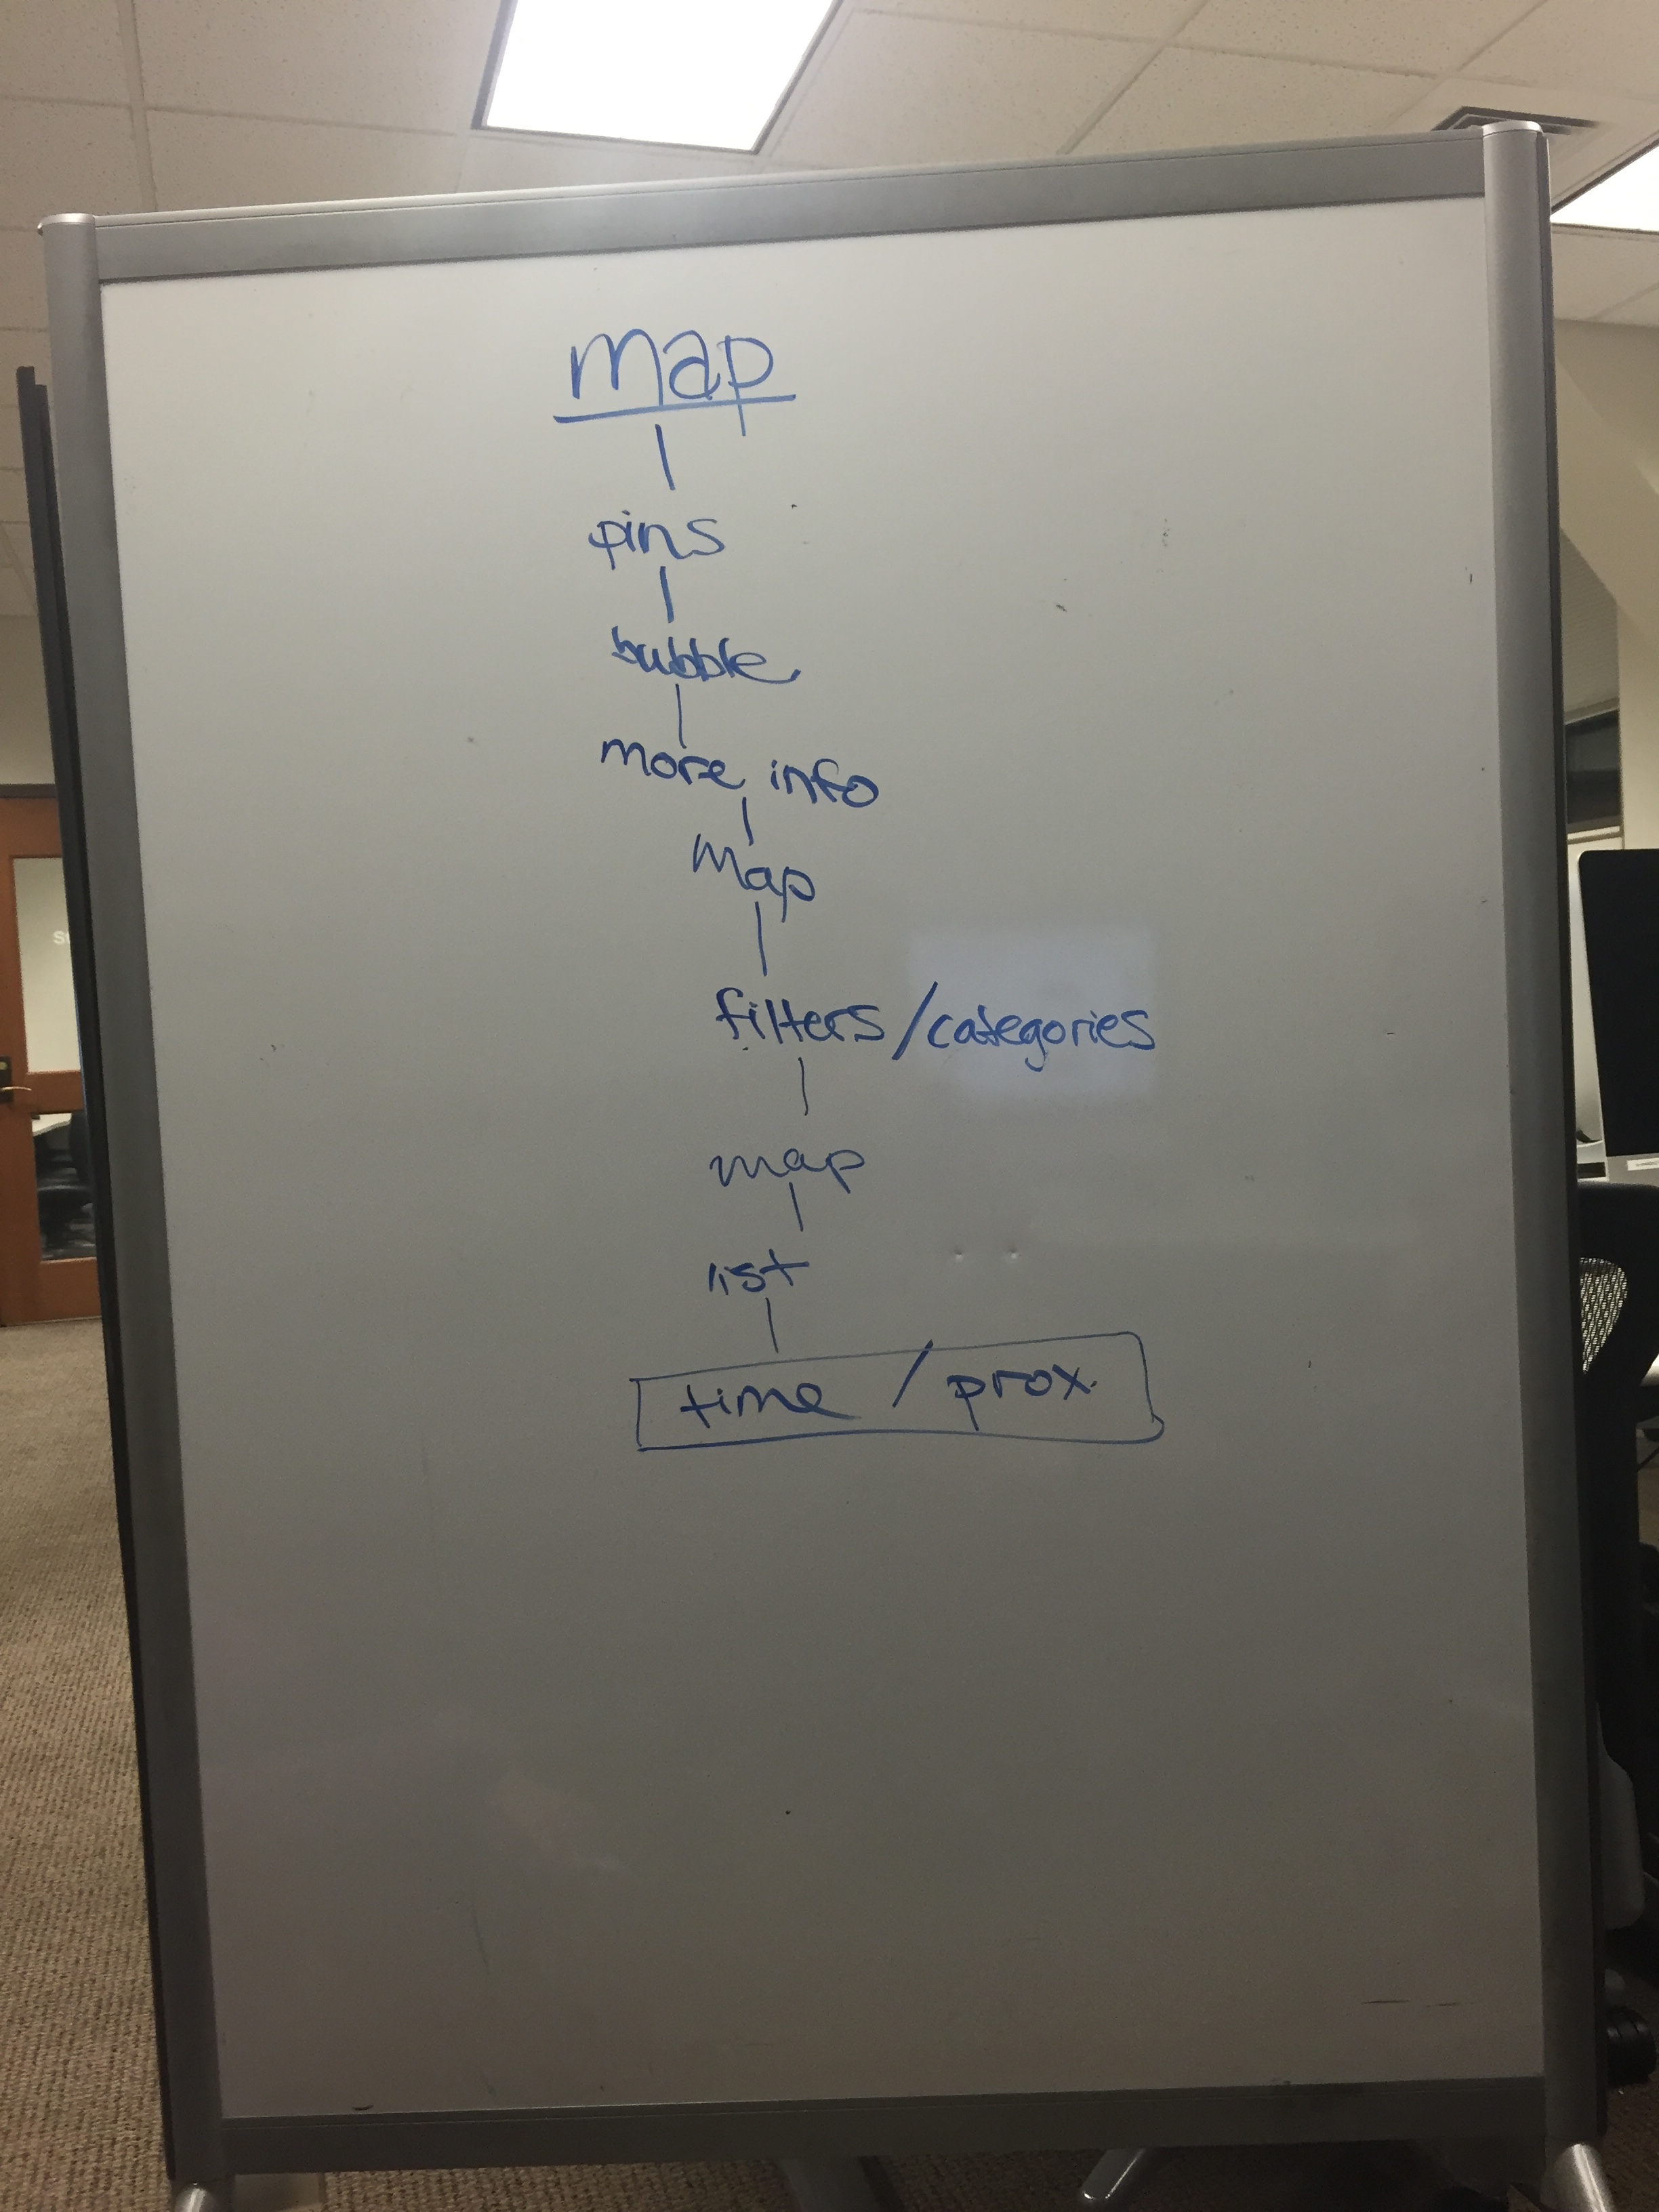 map
pins
bubble
more info
Map
filters/categories
map
list
time / prox.